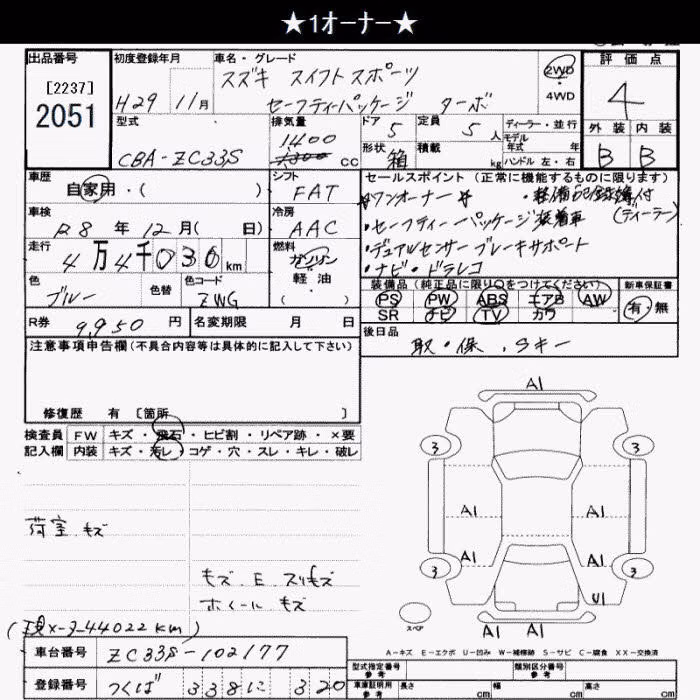 ★1オーナー★
出品番号
[2237]
2051
初度登録年月
H29 11月
車名・グレード
スズキ スイフトスポーツ
セーフティーパッケージ ターボ
2WD
・
4WD
評価点
4
外装 内装
B B
型式
CBA-ZC33S
排気量
1400
cc
ドア 5
定員 5人
形状 箱
積載 kg
ディーラー・並行
モデル
年式 年
ハンドル 左・右
車歴
自家用・( )
シフト
FAT
セールスポイント (正常に機能するものに限ります)
ワンオーナー
・セーフティーパッケージ装着車 (ディーラー)
・デュアルセンサーブレーキサポート
・ナビ・ドラレコ
車検
R8年12月( 日)
冷房
AAC
走行
4万4千036km
燃料
ガソリン
軽・油
・( )
色
ブルー
色替
色コード
ZWG
装備品 (純正品に限り○をつけてください)
PS PW ABS エアB AW
SR ナビ TV カワ
新車保証書
有・無
R券 9,950円
名変期限 月 日
後日品
取・保、Sキー
注意事項申告欄(不具合内容等は具体的に記入して下さい)
修復歴 有 〔箇所 〕
検査員 FW キズ・飛石・ヒビ割・リペア跡・×要
記入欄 内装 キズ・汚レ・コゲ・穴・スレ・キレ・破レ
荷室 キズ
キズ E スリキズ
ホイール キズ
(現メータ44022km)
A1
3 3
A1 A1
A1 A1
3 3
U1
スペア
A1 A1
A-キズ E-エクボ U-凹み W-補修跡 S-サビ C-腐食 XX-交換済
車台番号 ZC33S-102177
登録番号 つくば 338 に 320
型式指定番号
参考
類別区分番号
参考
車庫証明用
参考
長さ cm 幅 cm 高さ cm